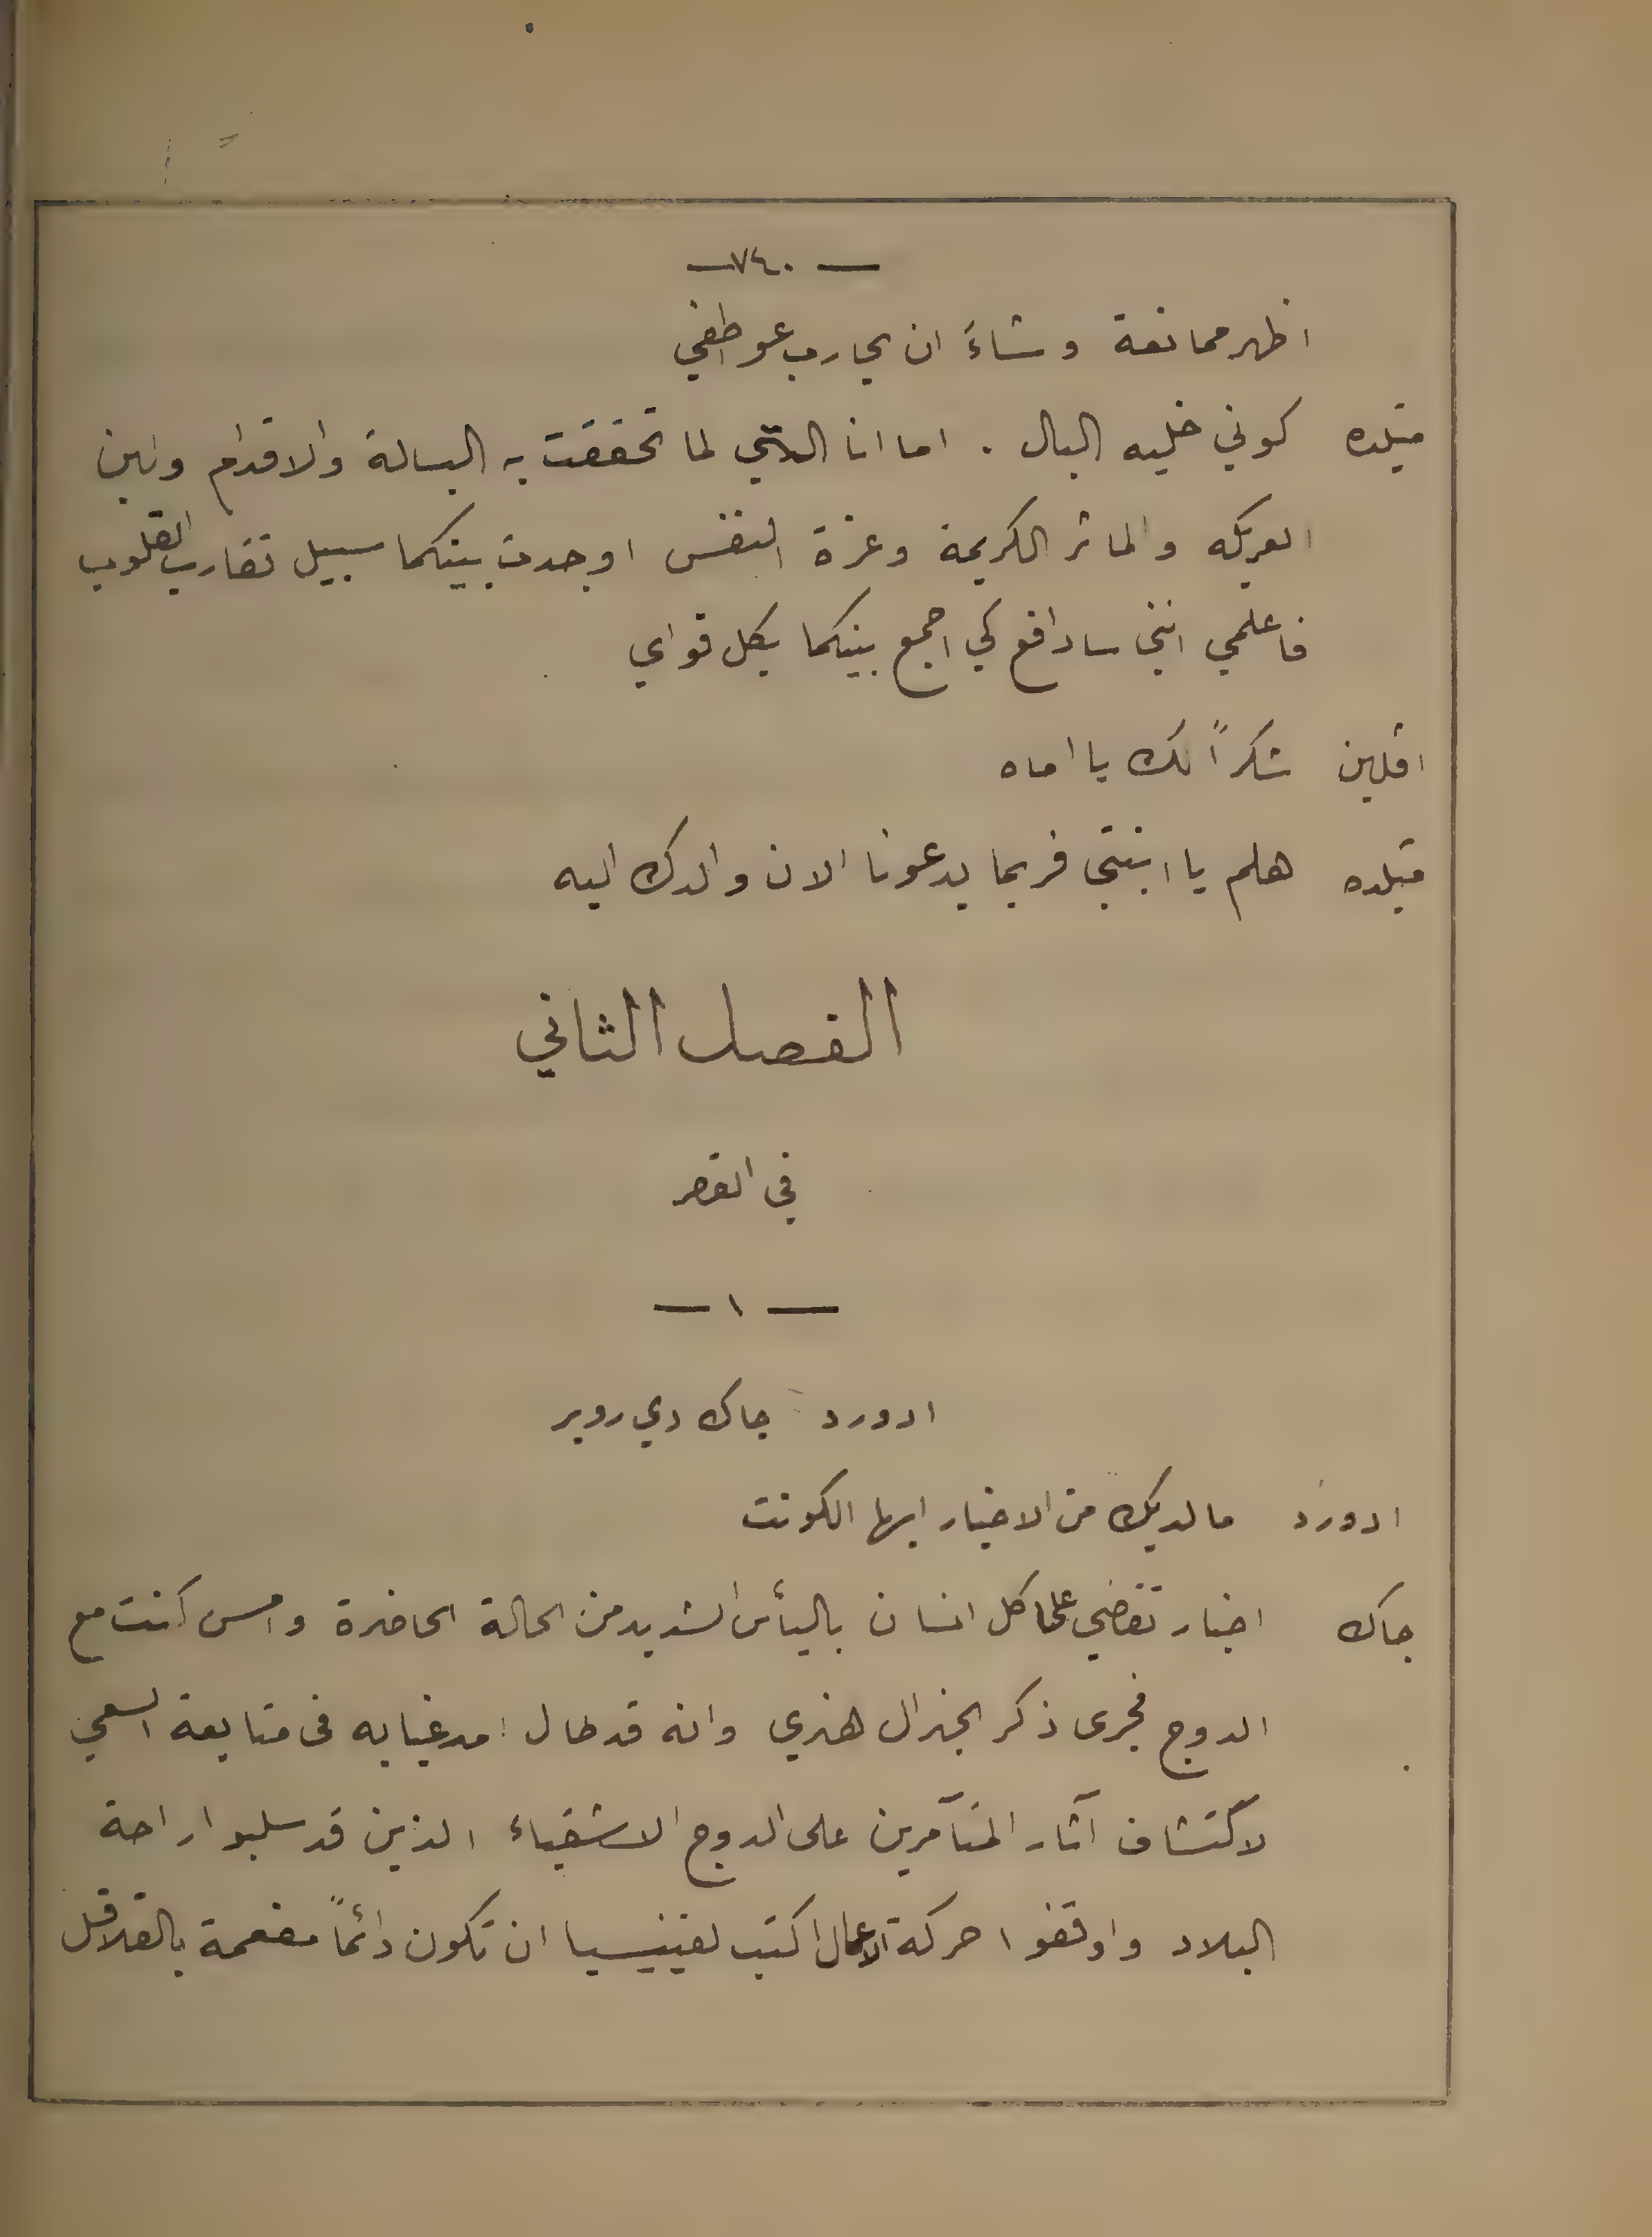 — ٧٤٠ —
اظهر ممانعة وشاءَ ان يحارب عواطفي
متيلده كوني خليه البال . اما انا التي لما تحققت به البسالة والاقدام ولين
العريكه والماثر الكريمة وعزة النفس اوجدت بينكما سبيل تقارب القلوب
فاعلمي انني سادافع كي اجمع بينكما بكل قواي
اڤلين شكراً لك يا اماه
متيلده هلم يا ابنتي فربما يدعونا الان والدك اليه
الفصل الثاني
في القصر
— ١ —
ادورد جاك دي روبر
ادورد ما لديك من الاخبار ايها الكونت
جاك اخبار تقضي على كل انسان باليأس الشديد من الحالة الحاضرة وامس كنت مع
الدوج فجرى ذكر الجنرال هنري وانه قد طال امد غيابه فى متابعة السعي
لاكتشاف آثار المتآمرين على الدوج الاشقياء الذين قد سلبوا راحة
البلاد واوقفوا حركة الاعمال اكتب لڤينيسيا ان تكون دائماً مفعمة بالقلاقل